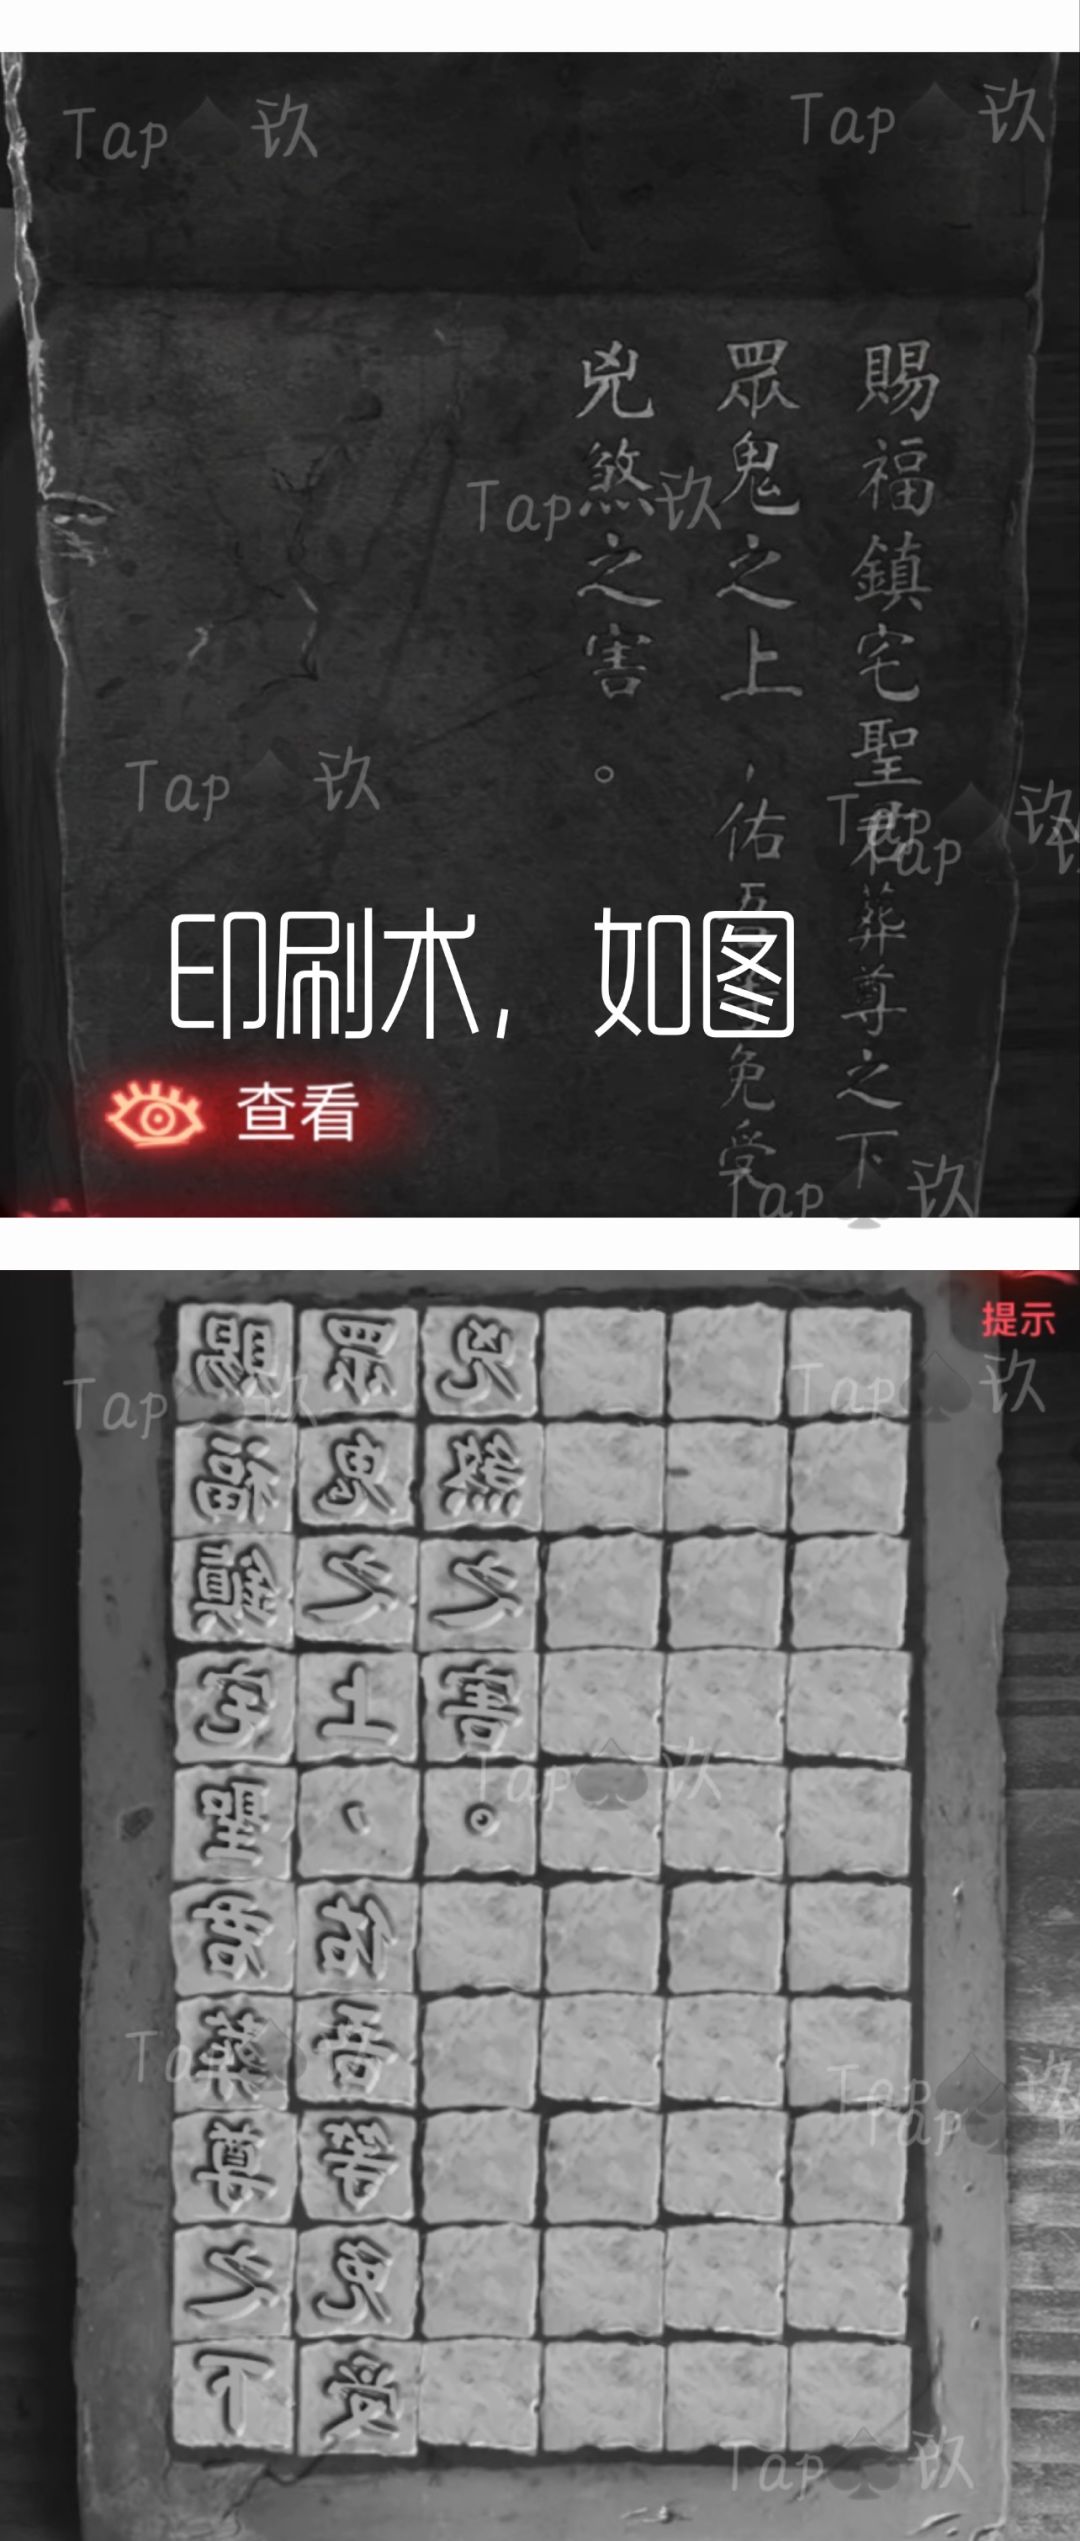 Tap 玖
Tap 玖
賜福鎮宅聖君葬尊之下
眾鬼之上，佑吾等免受
兇煞之害。
Tap 玖
Tap 玖
Tap 玖
Tap
印刷术，如图
查看
Tap 玖
提示
賜福鎮宅聖君葬尊之下
眾鬼之上，佑吾等免受
兇煞之害。
Tap 玖
Tap 玖
Tap 玖
Tap 玖
Tap 玖
Tap
Tap 玖